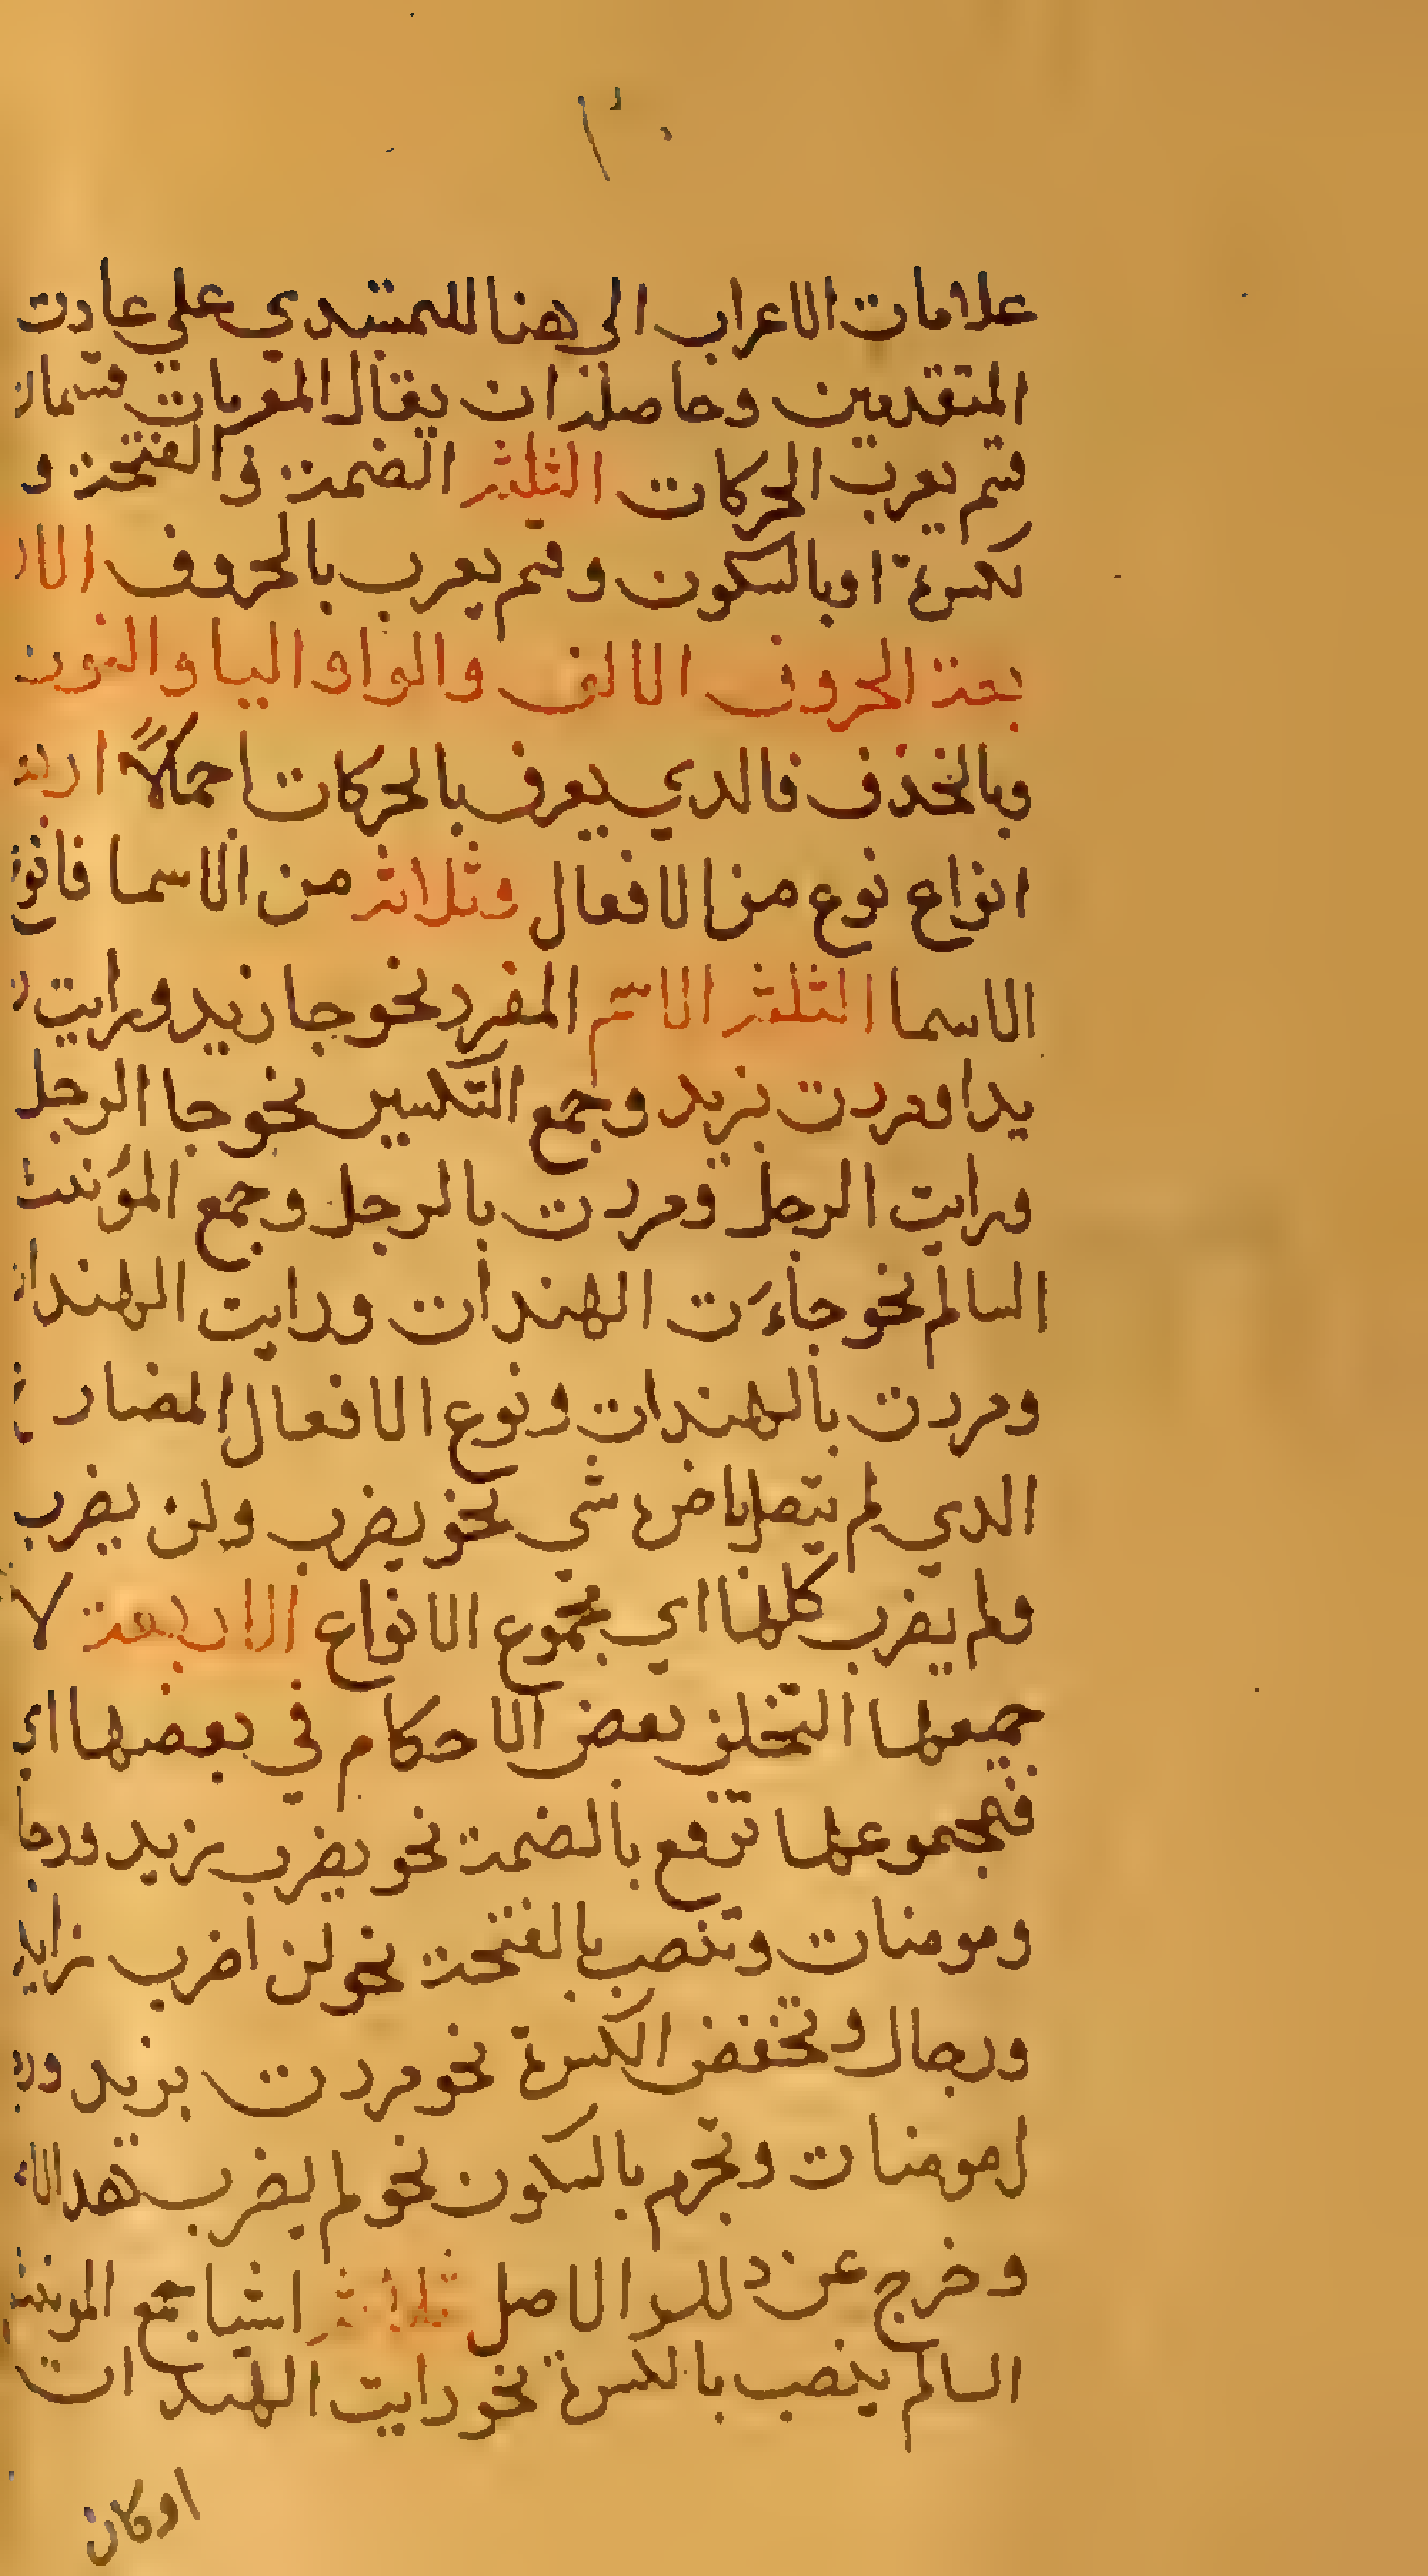 علامات الاعراب الى هنا للمبتدي علي عادت
المتقدمين وحاصله ان يقال المعربات قسمان
قسم يعرب الحركات الثلثة الضمة و الفتحة و
لكسرة او بالسكون وقسم يعرب بالحروف الار
بعة الحروف الالف والواو اليا والنون
وبالحذف فالدي يعرف بالحركات اجمالاً اربعة
انواع نوع من الافعال وثلاثة من الاسما فانوع
الاسما الثلثة الاسم المفرد نحو جا زيد ورايت ز
يدا ومردت بزيد وجمع التكسير نحو جا الرجل
ورايت الرجل ومردت بالرجل وجمع المؤنث
السالم نحو جاءت الهندات ورايت الهندات
ومردت بالهندات ونوع الافعال المضارع
الدي لم يتصل باخره شي نحو يضرب ولن يضرب
ولم يضرب كلها اي مجموع الانواع الاربعة لا
جميعها التخلف بعض الاحكام في بعضها اي
فمجموعها ترفع بالضمة نحو يضرب زيد ورجا
ومومنات وتنصب بالفتحة نحو لن اضرب زايد
ورجال وتخفض الكسرة نحو مردت بزيد ورجا
ل مومنات وتجرم بالسكون نحو لم يضرب هدالا
وخرج عن دلك الاصل ثلاثة اشيا جمع المونث
السالم ينصب بالكسرة نحو رايت الهندات
اوكان